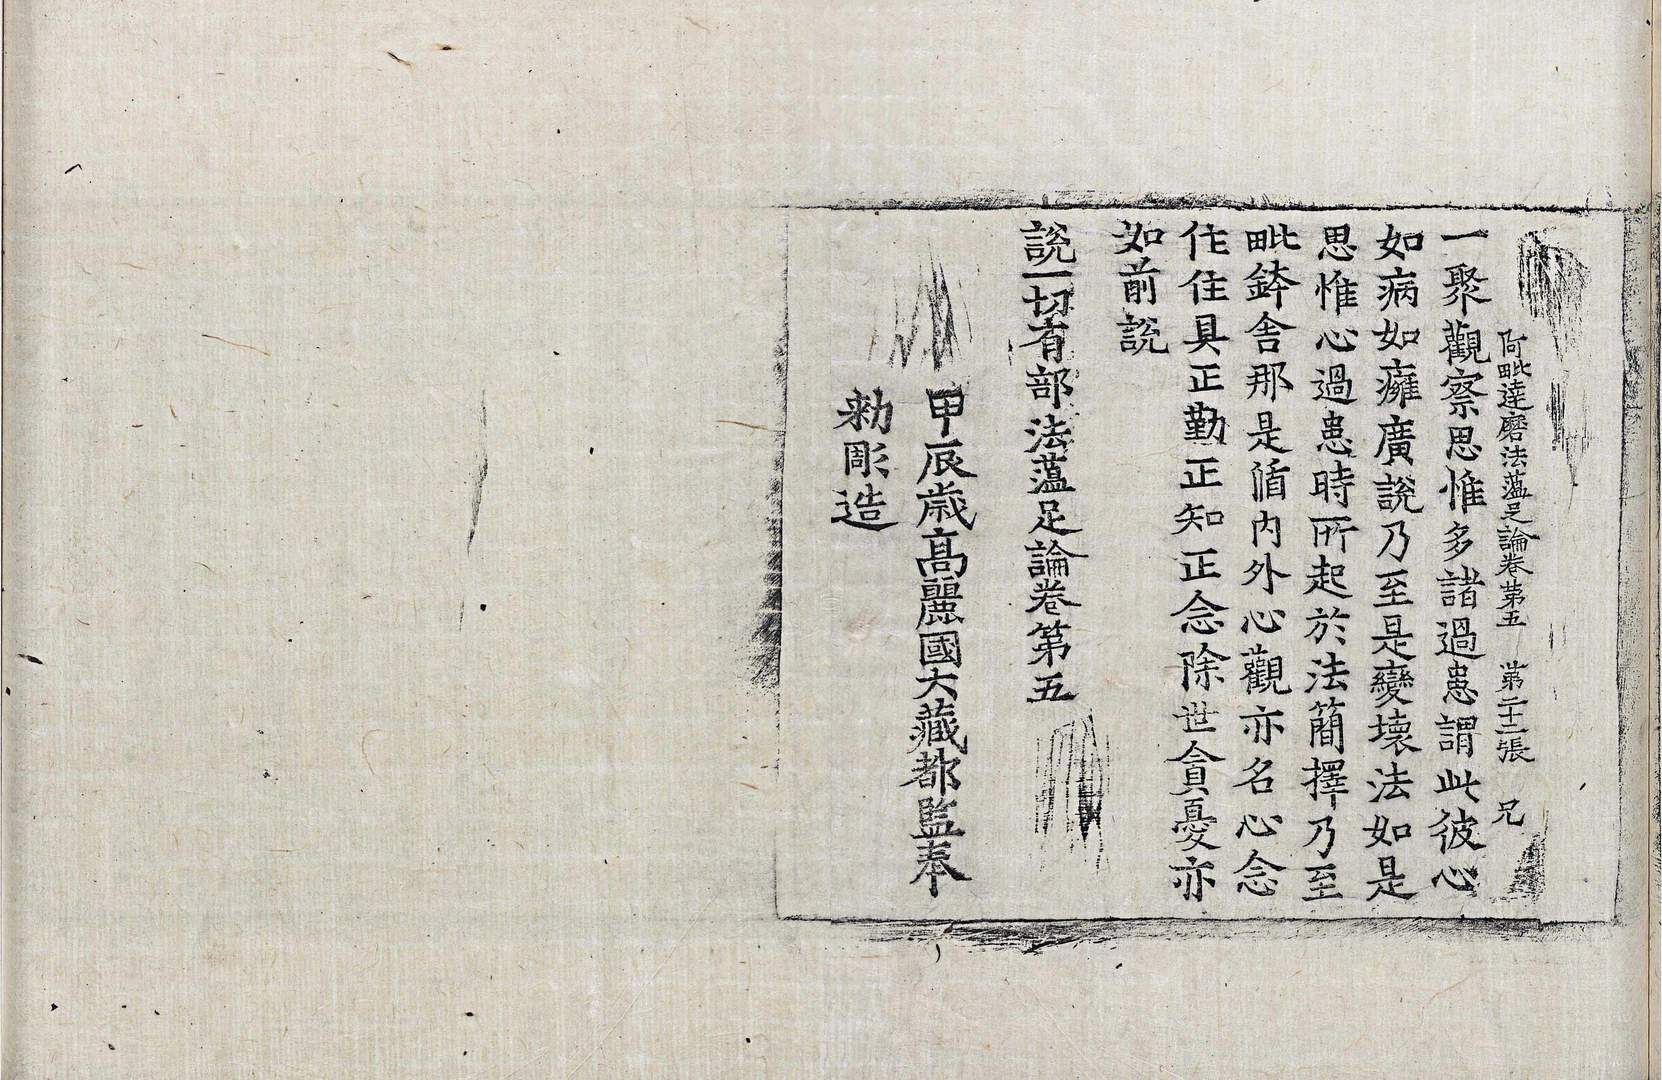 阿毗達磨法蘊足論卷第五 第二十二張 兄
一聚觀察思惟多諸過患謂此彼心
如病如癰廣說乃至是變壞法如是
思惟心過患時所起於法簡擇乃至
毗鉢舍那是循內外心觀亦名心念
住住具正勤正知正念除世貪憂亦
如前說
說一切有部法蘊足論卷第五
甲辰歲高麗國大藏都監奉
勑彫造